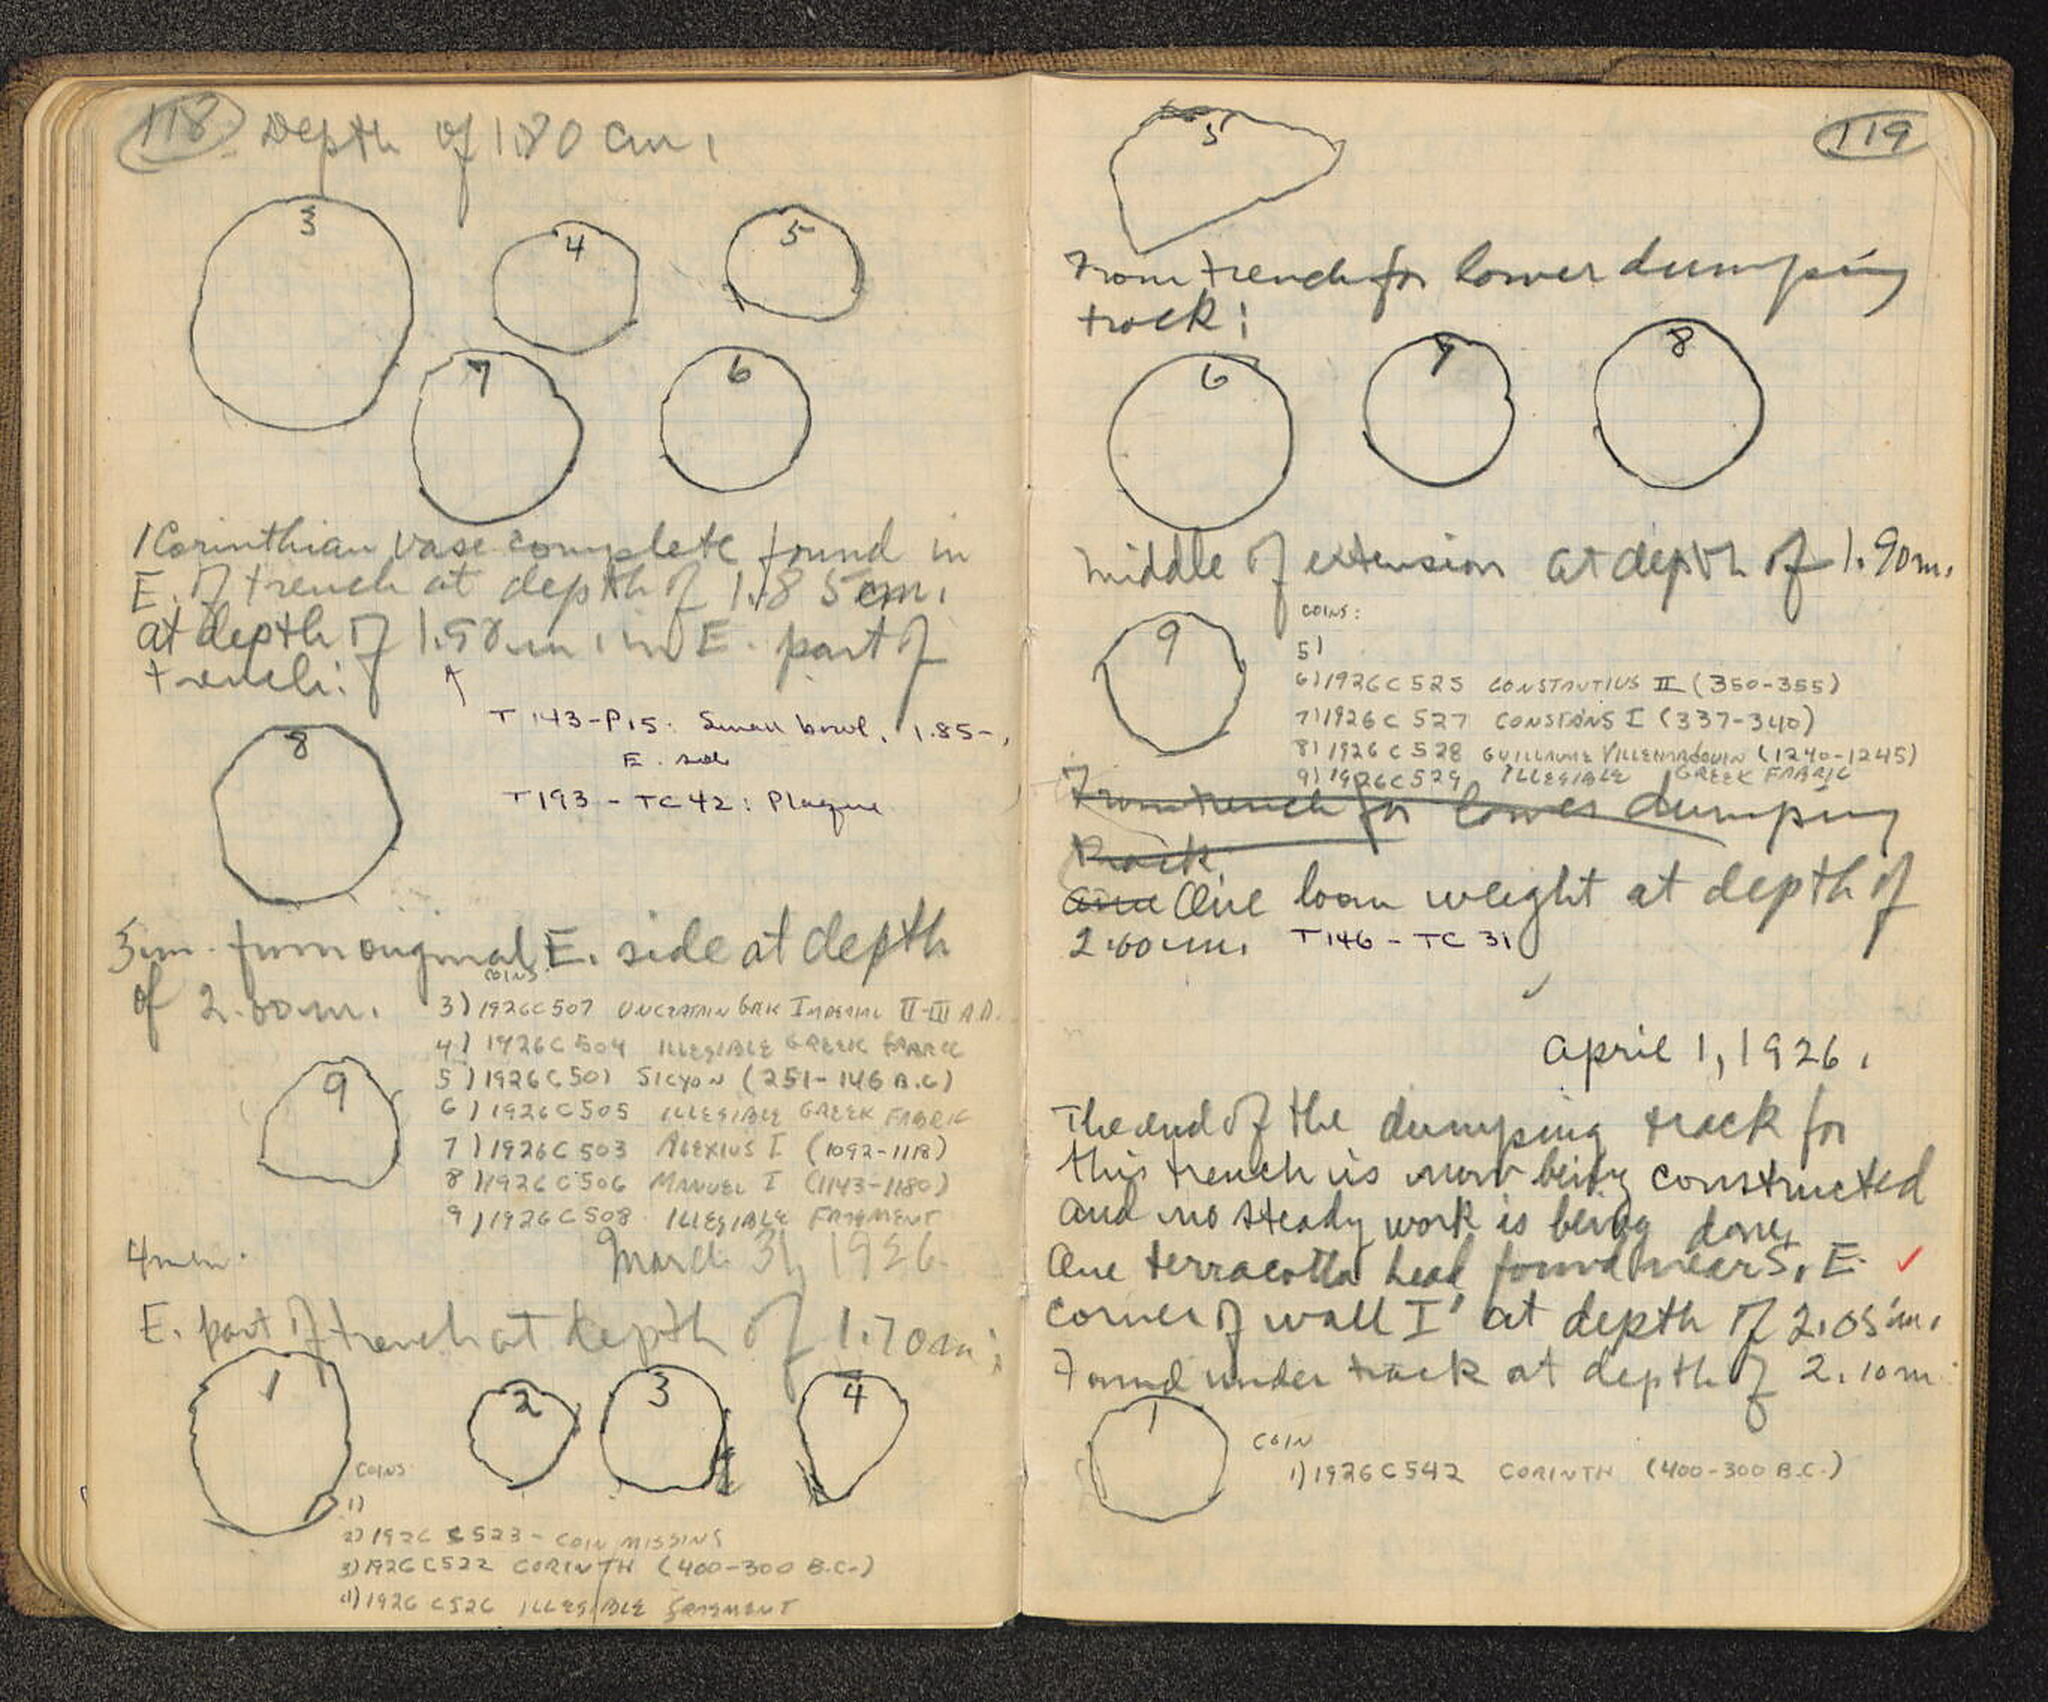 118 Depth of 1.80 cm.
3
4
5
7
6
1 Corinthian vase complete found in
E. of trench at depth of 1.85 cm.
at depth of m. in E. part of
trench:
T 143-P15: Small bowl, 1.85-,
E. side
T193 - TC42: Plaque
8
5m. from original E. side at depth
of 2.00m.
COINS:
3) 1926C507 UNCERTAIN GRK IMPERIAL II-III A.D.
4) 1926C504 ILLEGIBLE GREEK FABRIC
5) 1926C501 SICYON (251-146 B.C)
6) 1926C505 ILLEGIBLE GREEK FABRIC
7) 1926C503 ALEXIUS I (1092-1118)
8) 1926C506 MANUEL I (1143-1180)
9) 1926C508 ILLEGIBLE FRAGMENT
9
4 men.
March 31, 1926.
E. part of trench at depth of 1.70m:
1
2
3
4
COINS
1)
2) 1926 C523 - COIN MISSING
3) 1926C522 CORINTH (400-300 B.C.)
4) 1926 C526 ILLEGIBLE FRAGMENT
119
5
From trench for lower dumping
track:
6
7
8
Middle of extension at depth of 1.90m.
9
COINS:
5)
6) 1926C525 CONSTANTIUS II (350-355)
7) 1926C527 CONSTANS I (337-340)
8) 1926C528 GUILLAUME VILLEHARDOUIN (1240-1245)
9) 1926C529 ILLEGIBLE GREEK FABRIC
From trench for lower dumping
track.
One loom weight at depth of
2.00m. T146 - TC 31
April 1, 1926.
The end of the dumping track for
this trench is now being constructed
and no steady work is being done.
One terracotta head found near S. E. ✓
corner of wall I' at depth of 2.05m.
Found under track at depth of 2.10m
1
COIN
1) 1926C542 CORINTH (400-300 B.C.)